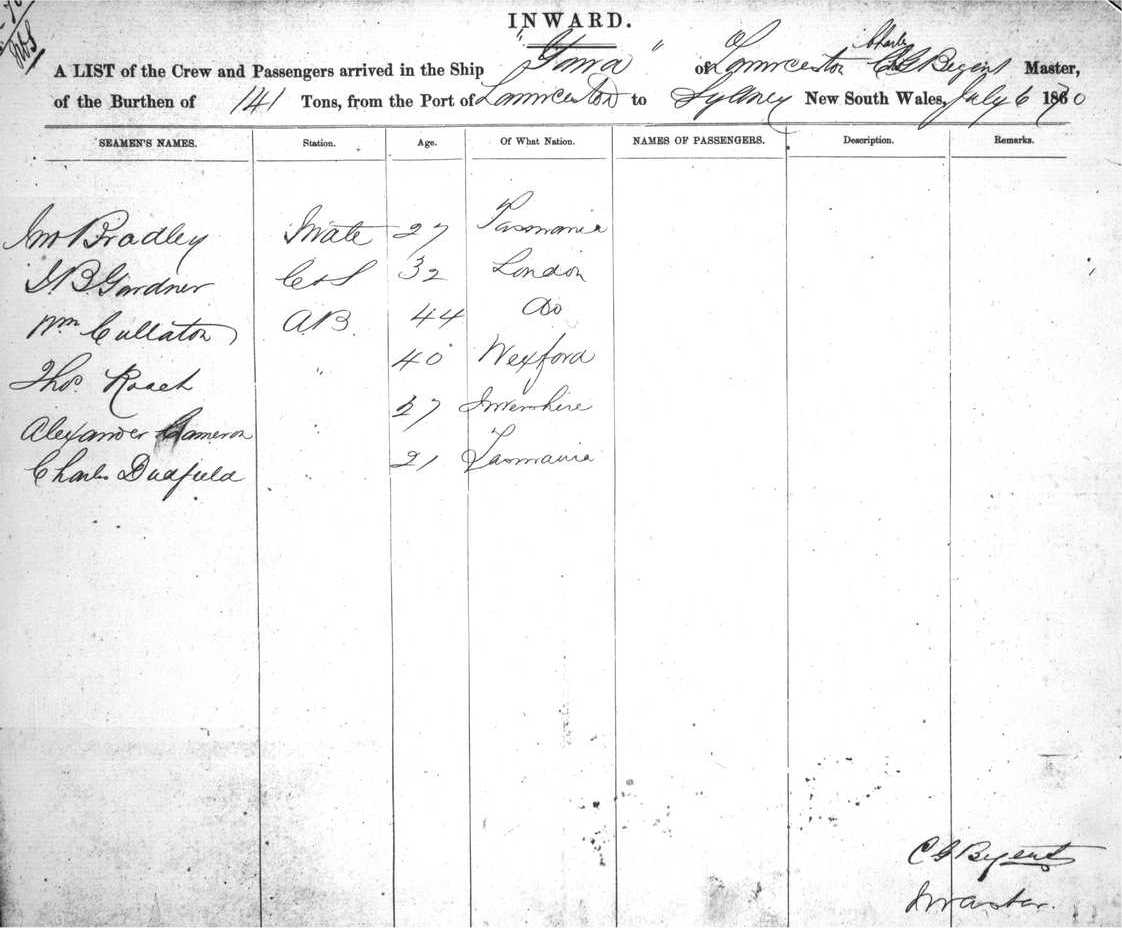 INWARD.
A LIST of the Crew and Passengers arrived in the Ship "Iona" of Launceston Charles Master,
of the Burthen of 141 Tons, from the Port of Launceston to Sydney New South Wales, July 6 1870
SEAMEN'S NAMES. Station. Age. Of What Nation. NAMES OF PASSENGERS. Description. Remarks.
Jno Bradley Mate 27 Tasmania
J B Gardner C&S 32 London
Wm Cullaton AB. 44 Do
Thos. Roach " 40 Wexford
Alexander Cameron 27
Charles Dudfield 21 Tasmania
C G Bygent
Master.